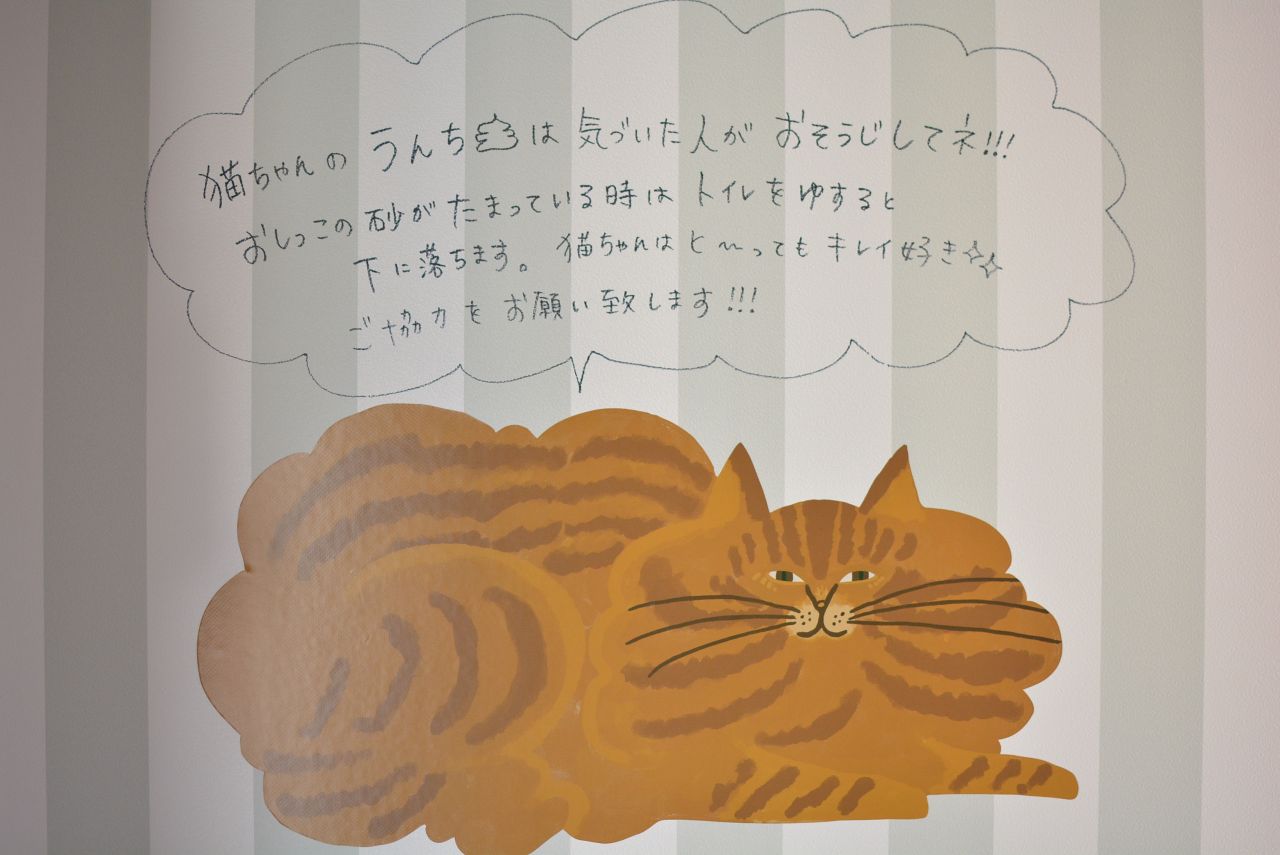 猫ちゃんの うんちは 気づいた人が おそうじしてネ!!!
おしっこの砂がたまっている時は トイレをゆすると
下に落ちます。 猫ちゃんはと〜ってもキレイ好き
ご協力を お願い致します!!!